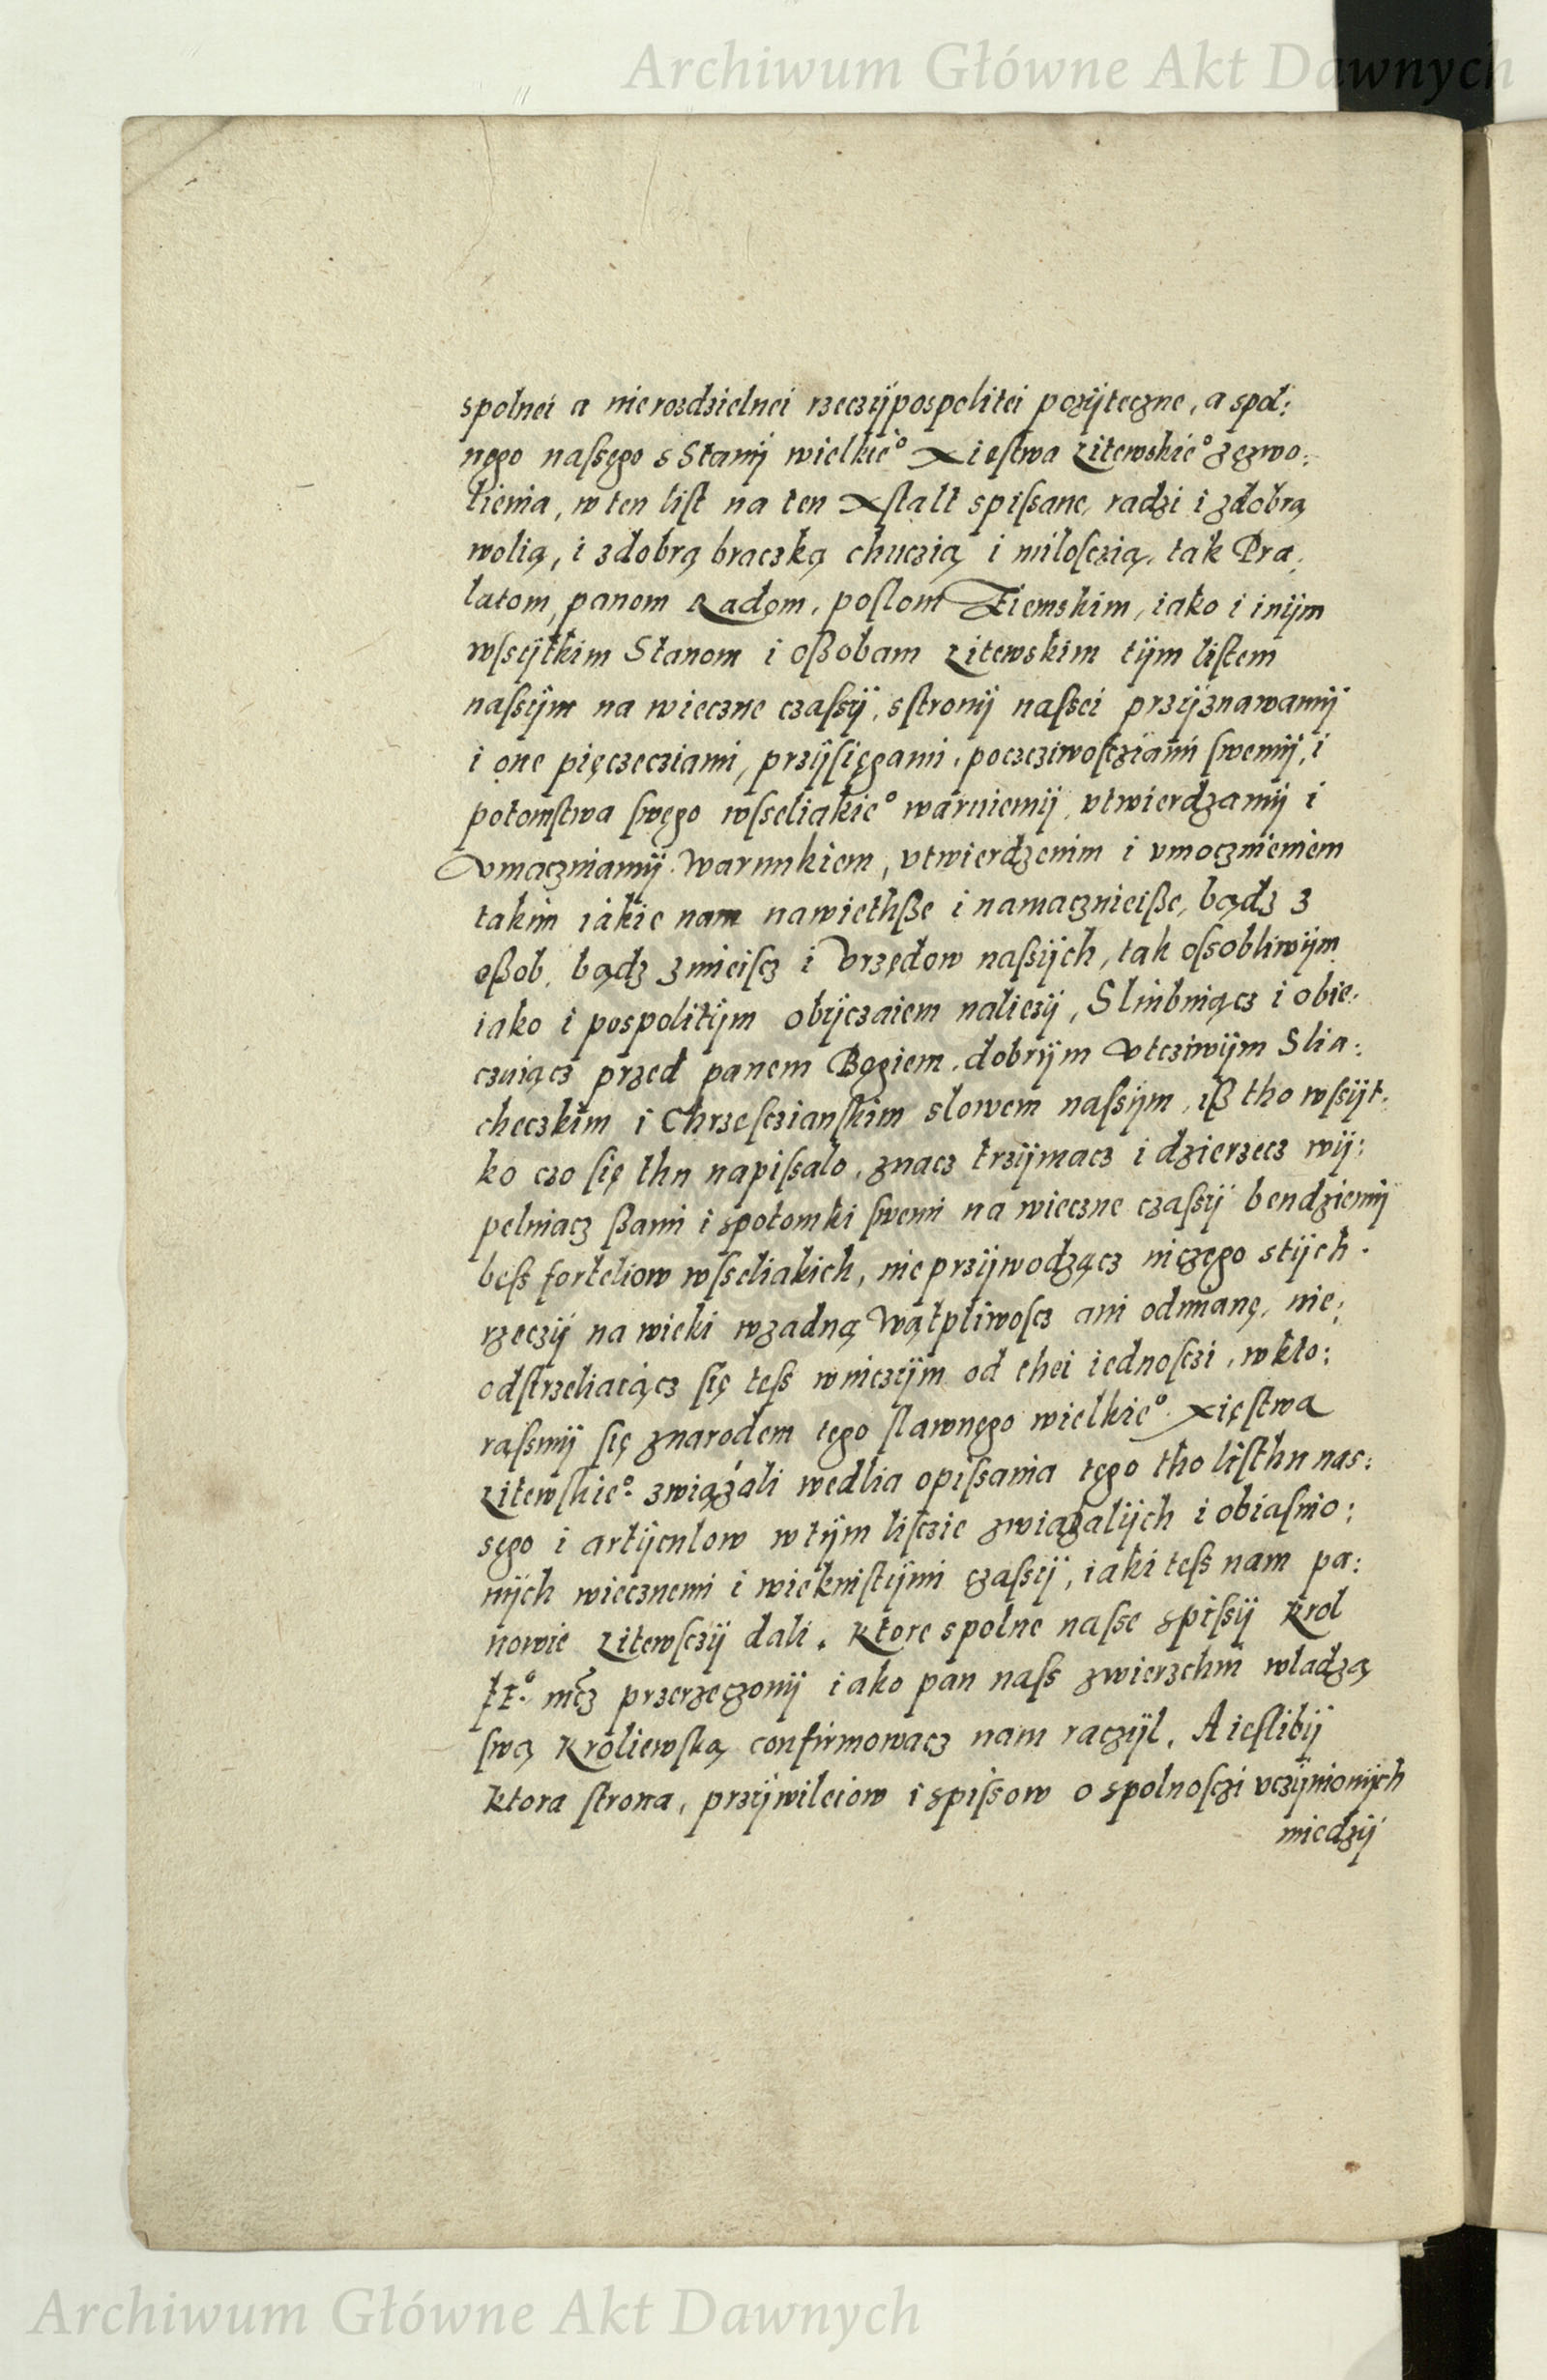 Archiwum Główne Akt Dawnych
spolnei a nierozdzielnei rzeczÿpospolitei pozÿteczne, a spol:
nęgo naſsęgo s Stanÿ wielkie° Xięſtwa Litewskie° zęzwo:
lienia, w ten liſt na ten xſtalt spiſsane, radzi i zdobrą
wolią, i zdobrą braczką chuczią i miloſczią, tak Pra:
latom, panom Radom, poſlom Ziemskim, iako i inÿm
wſsÿtkim Stanom i oßobam Litewskim tÿm liſtem
naſsÿm na wieczne czaſsÿ, sſtronÿ naſsei przÿznawamÿ
i one pięczecziami, przÿſięgami, poczcziwoſcziami ſwemÿ, i
potomſtwa ſwęgo wſseliakie° waruiemÿ, utwierdzamÿ i
Vmaczniamÿ. Warunkiem, utwierdzenim i umocznieniem
takim iakie nam nawiethße i namacznieiße, bądz z
oßob, bądz zmieiſcz i Vrzędow naſsÿch, tak oſsobliwÿm
iako i pospolitÿm obÿczaiem naliezÿ, Sliubuiącz i obie:
czuiącz przed panem Bogiem, dobrÿm Vtcziwÿm Slia:
checzkim i Chrzeſczianſkim slowem naſsÿm, iß tho wſsÿt:
ko czo ſię thu napiſsalo, znacz trzÿmacz i dzierzecz wÿ:
pelniacz ßami i spotomki ſwemi na wieczne czaſsÿ bendziemÿ
beſs forteliow wſseliakich, nie przÿwodzącz niczego stÿch
rzeczÿ na wieki wzadną Wątpliwoſcz ani odmianę, nie:
odſtrzeliaiącz ſię teſs wniczÿm od thei iednoſczi, wkto:
rąſsmÿ ſię znarodem tego ſlawnęgo wielkie° Xięſtwa
Litewſkie° związali wedlia opiſsania tęgo tho liſthu nas:
sęgo i artÿculow wtÿm liſczie zwiazalÿch i obiaſnio:
nÿch wiecznemi i wiekuiſtÿmi czaſsÿ, iaki teſs nam pa:
nowie Litewſczÿ dali. Ktore spolne naſse spiſsÿ Krol
Je° mcz przerzeczonÿ iako pan naſs zwierzchni wladzą
ſwą Kroliewſką confirmowacz nam raczÿl. A ieſlibÿ
ktora ſtrona, przÿwileiow i spiſsow o spolnoſczi uczÿnionÿch
miedzÿ
Archiwum Główne Akt Dawnych